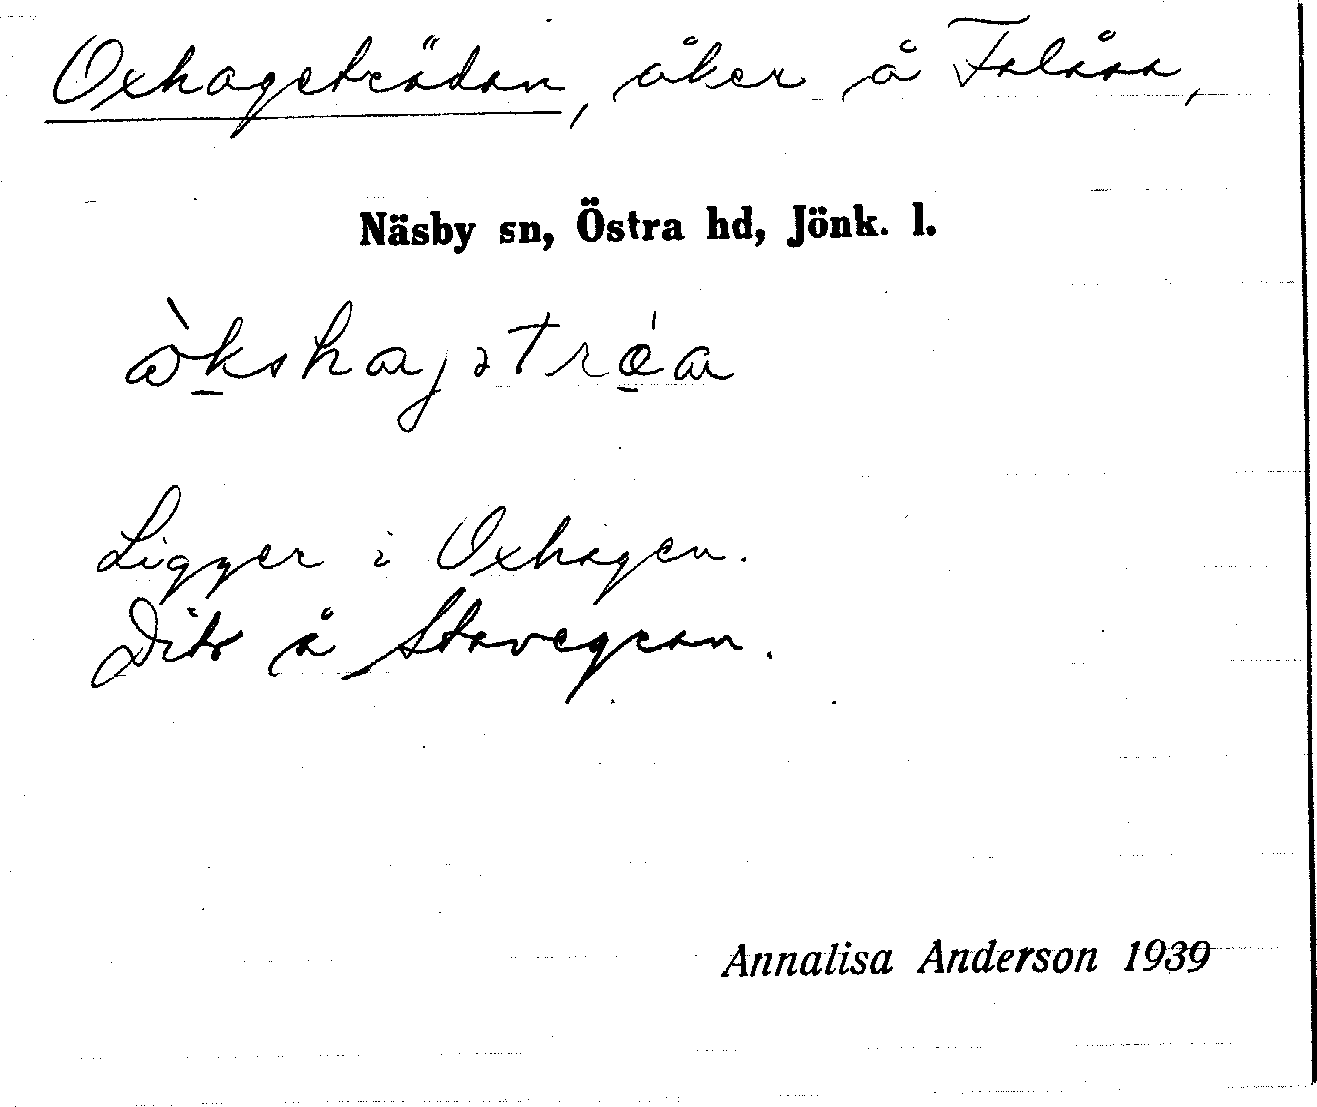 Oxhageträdan, åker å Falåsa,
Näsby sn, Östra hd, Jönk. l.
òkshaꞬətrǽa
Ligger i Oxhagen.
Dito å Stavegran.
Annalisa Anderson 1939